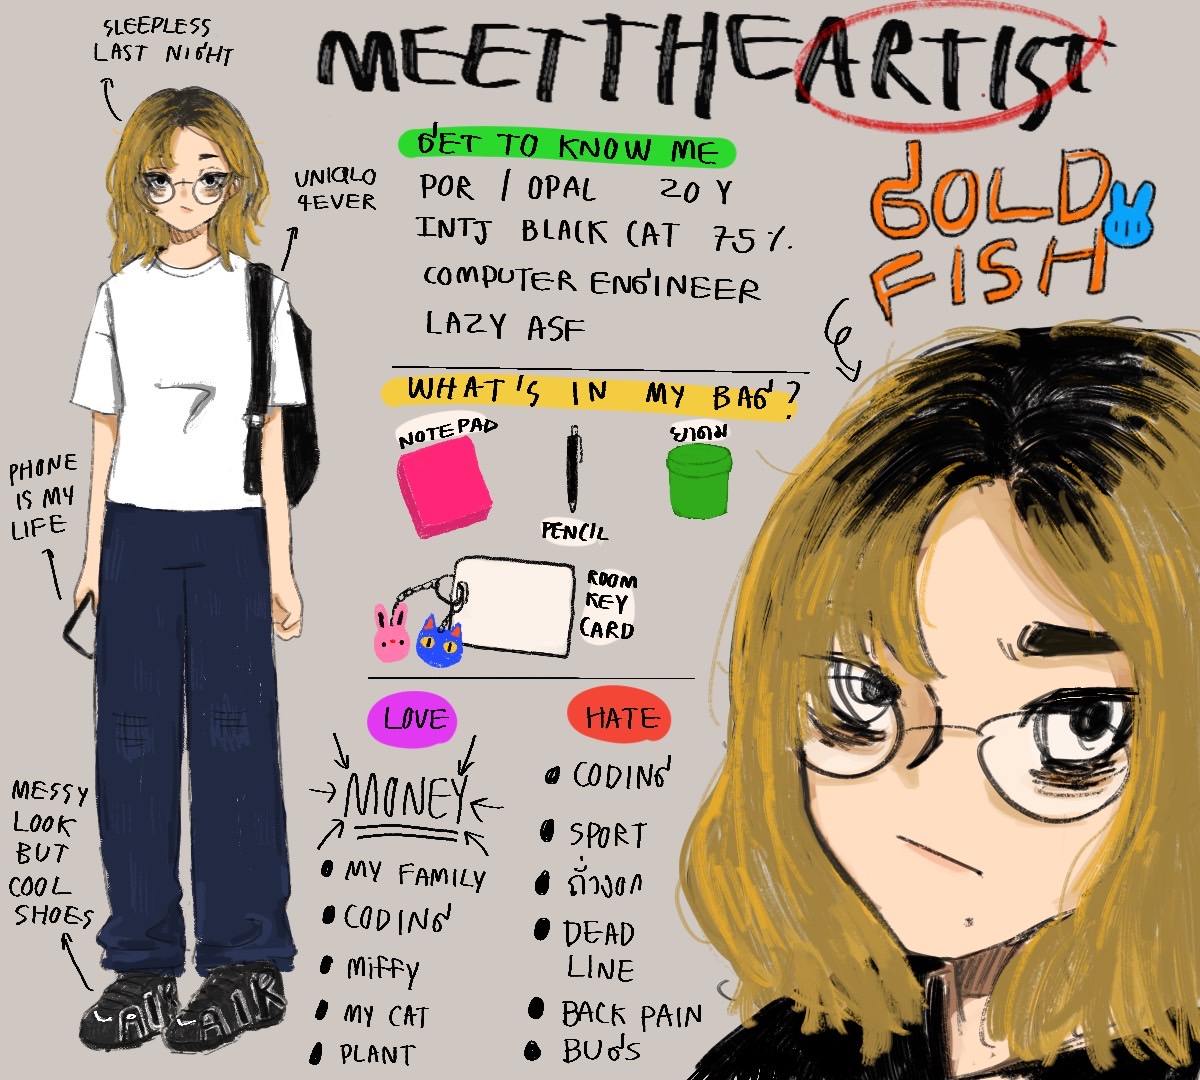 MEET THE ARTIST
SLEEPLESS
LAST NIGHT
UNIQLO
4EVER
PHONE
IS MY
LIFE
MESSY
LOOK
BUT
COOL
SHOES
AIR
AIR
GET TO KNOW ME
POR / OPAL 20 Y
INTJ BLACK CAT 75%.
COMPUTER ENGINEER
LAZY ASF
GOLD
FISH
WHAT'S IN MY BAG?
NOTEPAD
PENCIL
ยาดม
ROOM
KEY
CARD
LOVE
MONEY
MY FAMILY
CODING
MIFFY
MY CAT
PLANT
HATE
CODING
SPORT
ถั่วงอก
DEAD
LINE
BACK PAIN
BUGS